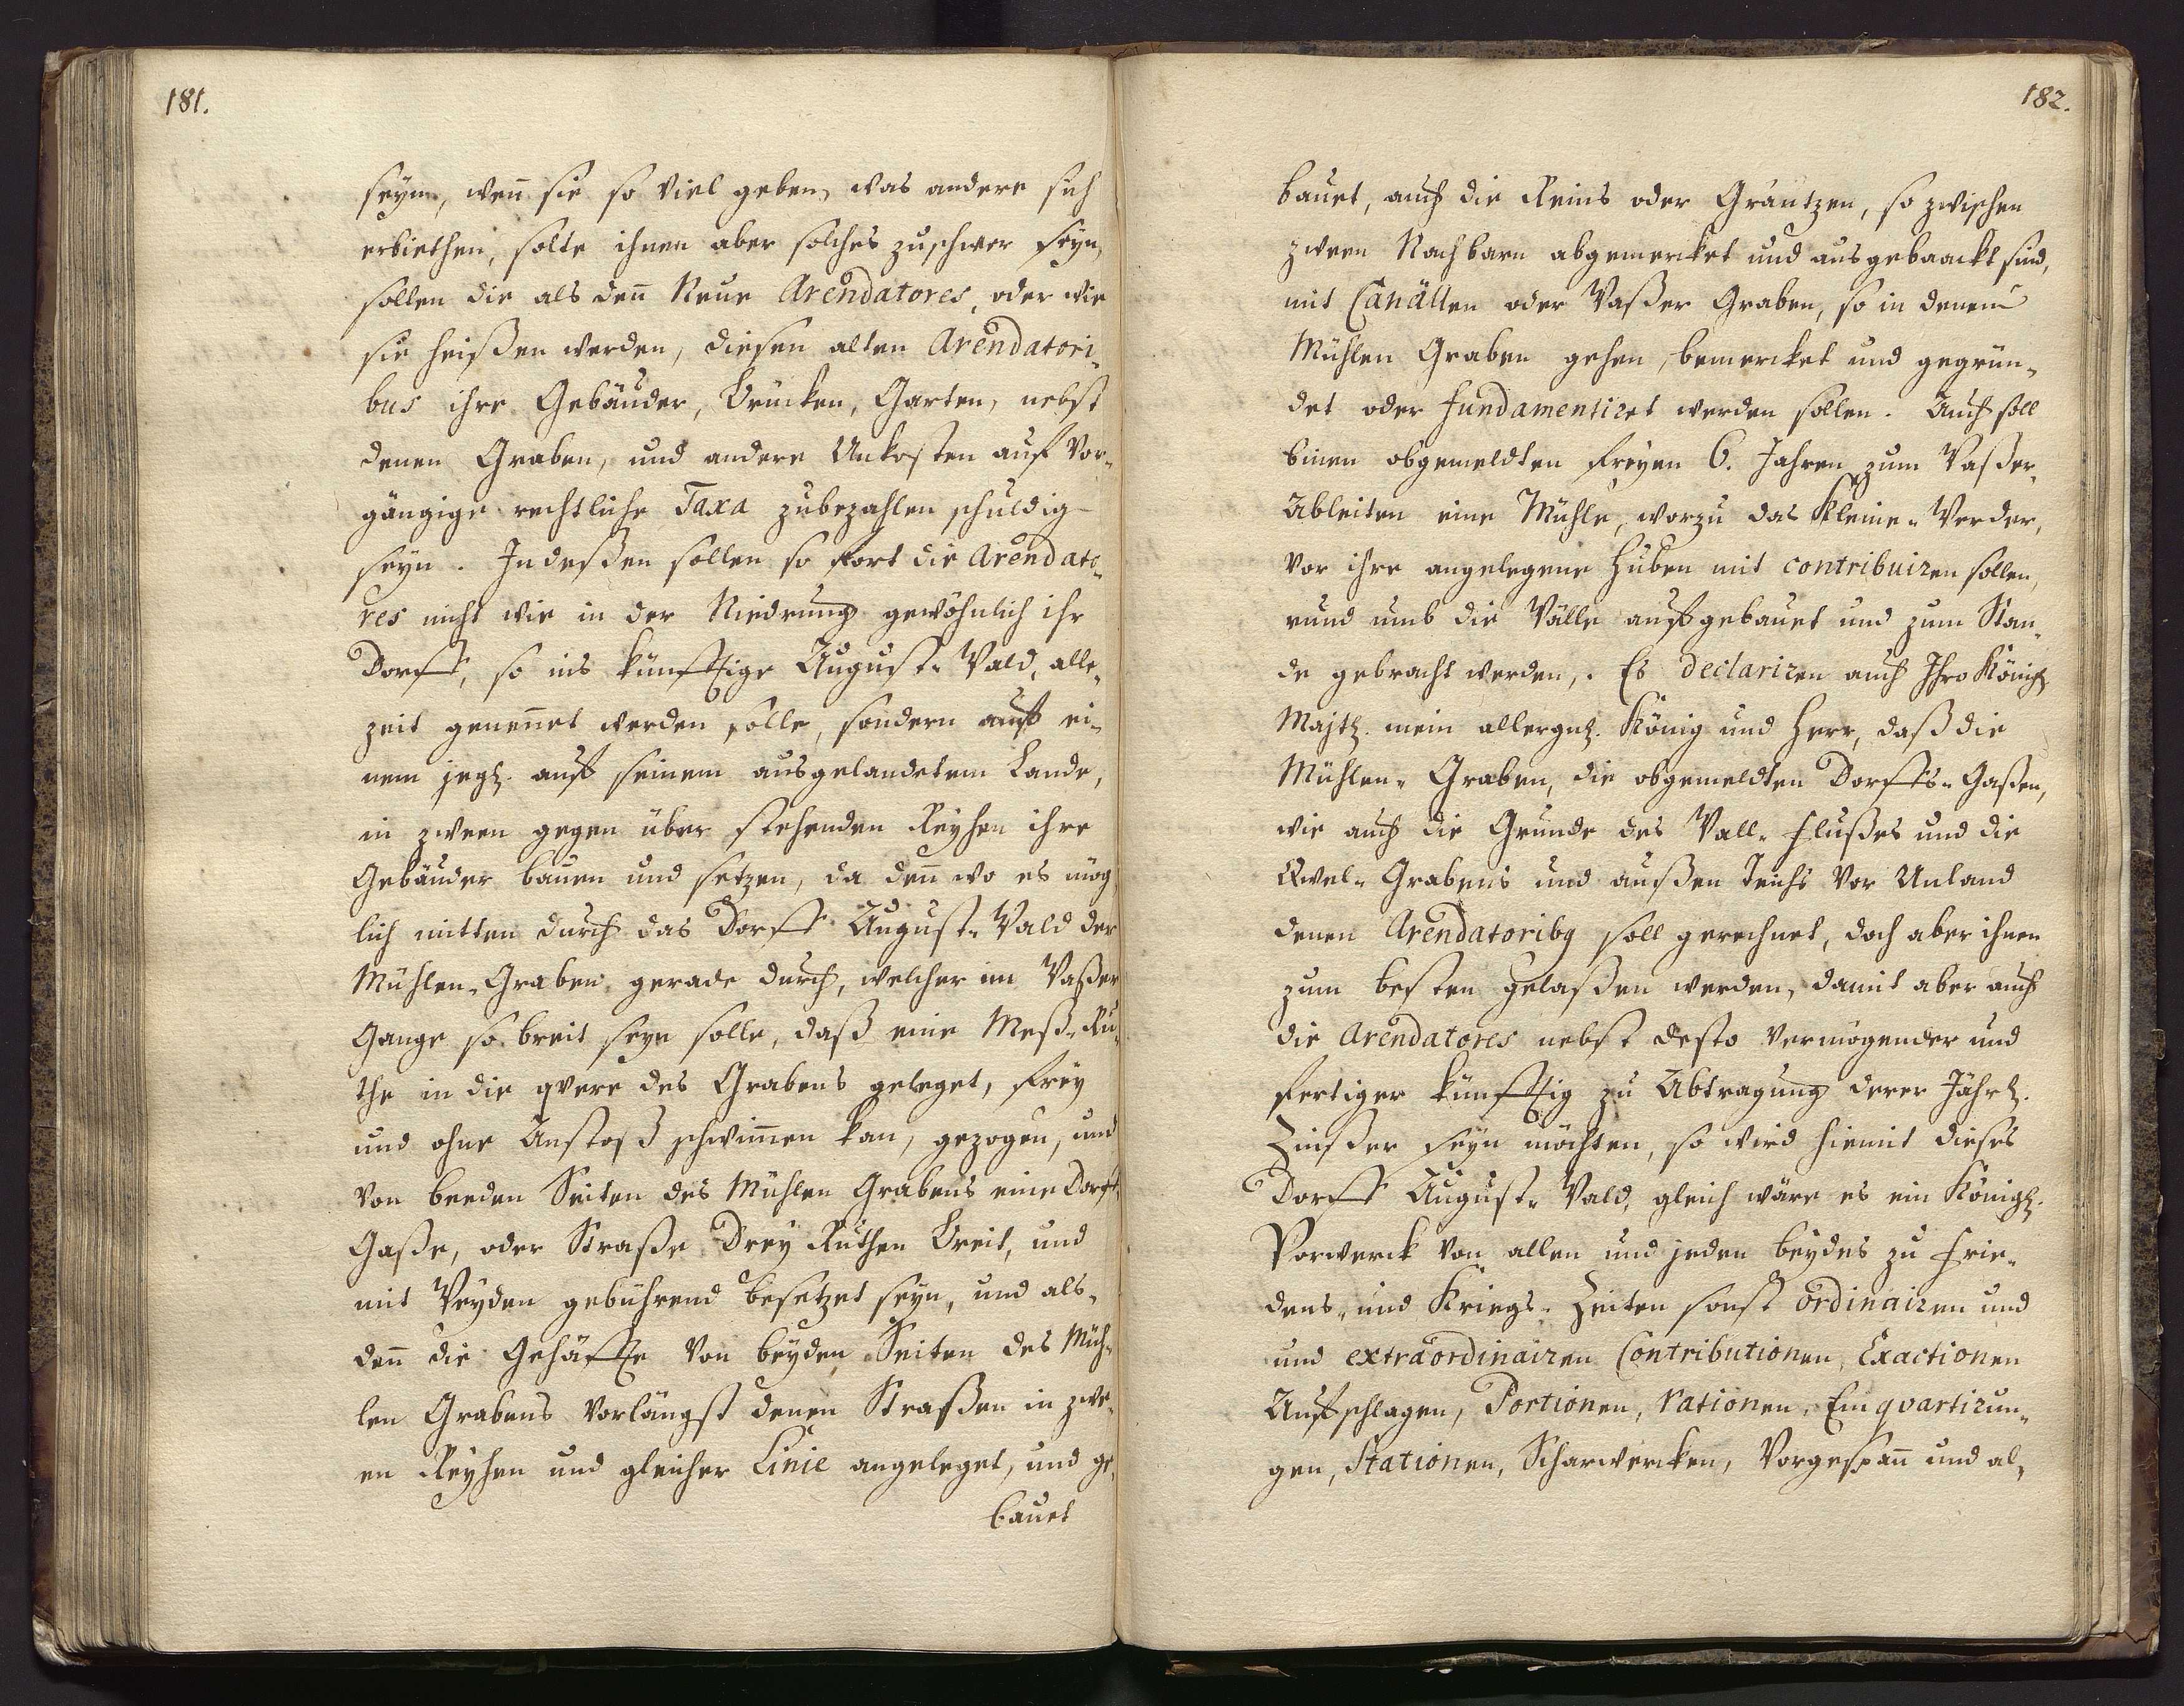 181.
seyn, weñ sie so viel geben, was andere sich
erbiethen, solte ihnen aber solches zuschwer seyn,
sollen die als deñ Neue Arendatores, oder wie
sie heißen werden, diesen alten Arendatori-
bus ihre Gebäuder, Brücken, Garten, nebst
denen Graben, und andere Unkosten auf vor-
gängige rechtliche Taxa zubezahlen schuldig
seyn. Indeßen sollen so fort die Arendato-
res nicht wie in der Niedrung gewöhnlich ihr
Dorff, so ins künfftige August-Wald, alle-
zeit geneñet werden solle, sondern auff ei-
nem jegl. auff seinem ausgelandetem Lande,
in zween gegen über stehenden Reyhen ihre
Gebäuder bauen und setzen, da deñ wo es mög
lich mitten durch das Dorff August-Wald der
Mühlen-Graben gerade durch, welcher im Waßer
Gange so breit seyn solle, daß eine Meß-Ru-
the in die qvere des Grabens geleget, frey
und ohne Anstoß schwim̃en kan, gezogen, und
von beeden Seiten des Mühlen Grabens eine Dorff-
Gaße, oder Straße Drey Ruthen Breit, und
mit Weyden gebührend besetzet seyn, und als-
deñ die Gehöffte von beyden Seiten des Müh-
len Grabens vorlängst denen Straßen in zwe-
en Reyhen und gleicher Linie angeleget, und ge-
bauet
182.
bauet, auch die Reins oder Gräntzen, so zwischen
zween Nachbarn abgemercket und ausgebaackt sind,
mit Canällen oder Waßer Graben, so in denen
Mühlen Graben gehen, bemercket und gegrün-
det oder fundamentiret werden sollen. Auch soll
binnen obgemeldten freyen 6. Jahren zum Waßer-
Ableiten eine Mühle, worzu das Kleine-Werder,
vor ihre angelegene Huben mit contribuiren sollen,
rund umb die Wälle auffgebauet und zum Stan-
de gebracht werden,. Es declariren auch Ihro Königl
Majtl. mein allergnl. König und Herr, daß die
Mühlen-Graben, die obgemeldten Dorffs-Gaßen,
wie auch die Gründe des Wall-Flußes und die
Qvel-Grabens und außen Teichs vor Unland
denen Arendatoribq soll gerechnet, doch aber ihnen
zum besten gelaßen werden, damit aber auch
die Arendatores nebst desto vermögender und
fertiger künfftig zu Abtragung derer Jährl.
Zinßer seyn möchten, so wird hiemit dieses
Dorff August-Wald, gleich wäre es ein Königl.
Vorwerck von allen und jeden beydes zu Frie-
dens- und Kriegs-Zeiten sonst ordinairen und
und extraordinairen Contributionen, Exactionen
Auffschlagen, Portionen, rationen, Einqvartirun-
gen, Stationen, Scharwercken, Vorgespañ und al-